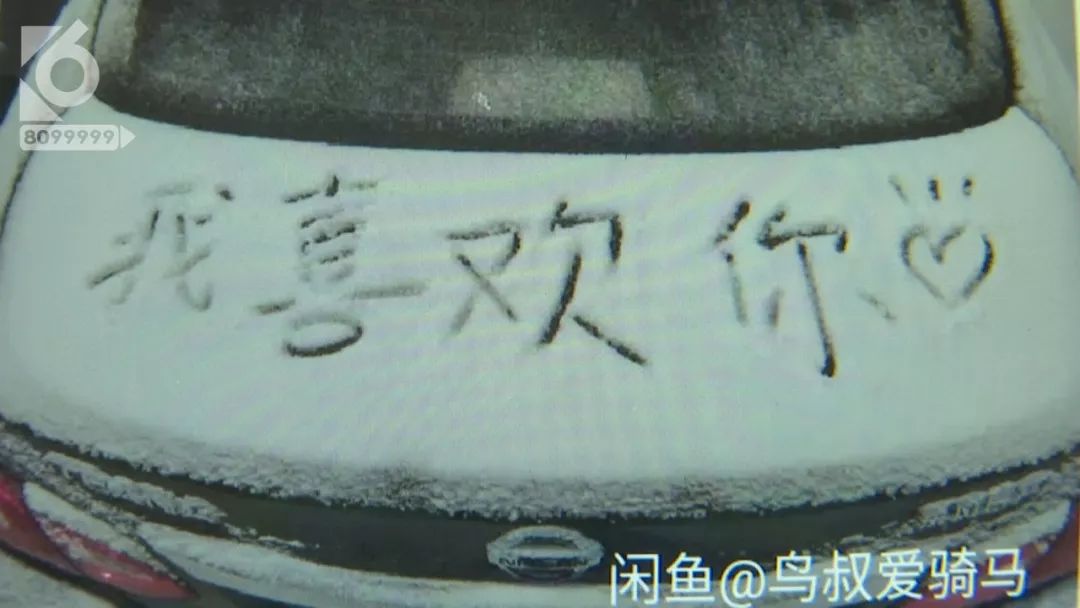 6
8099999
我喜欢你
闲鱼@鸟叔爱骑马